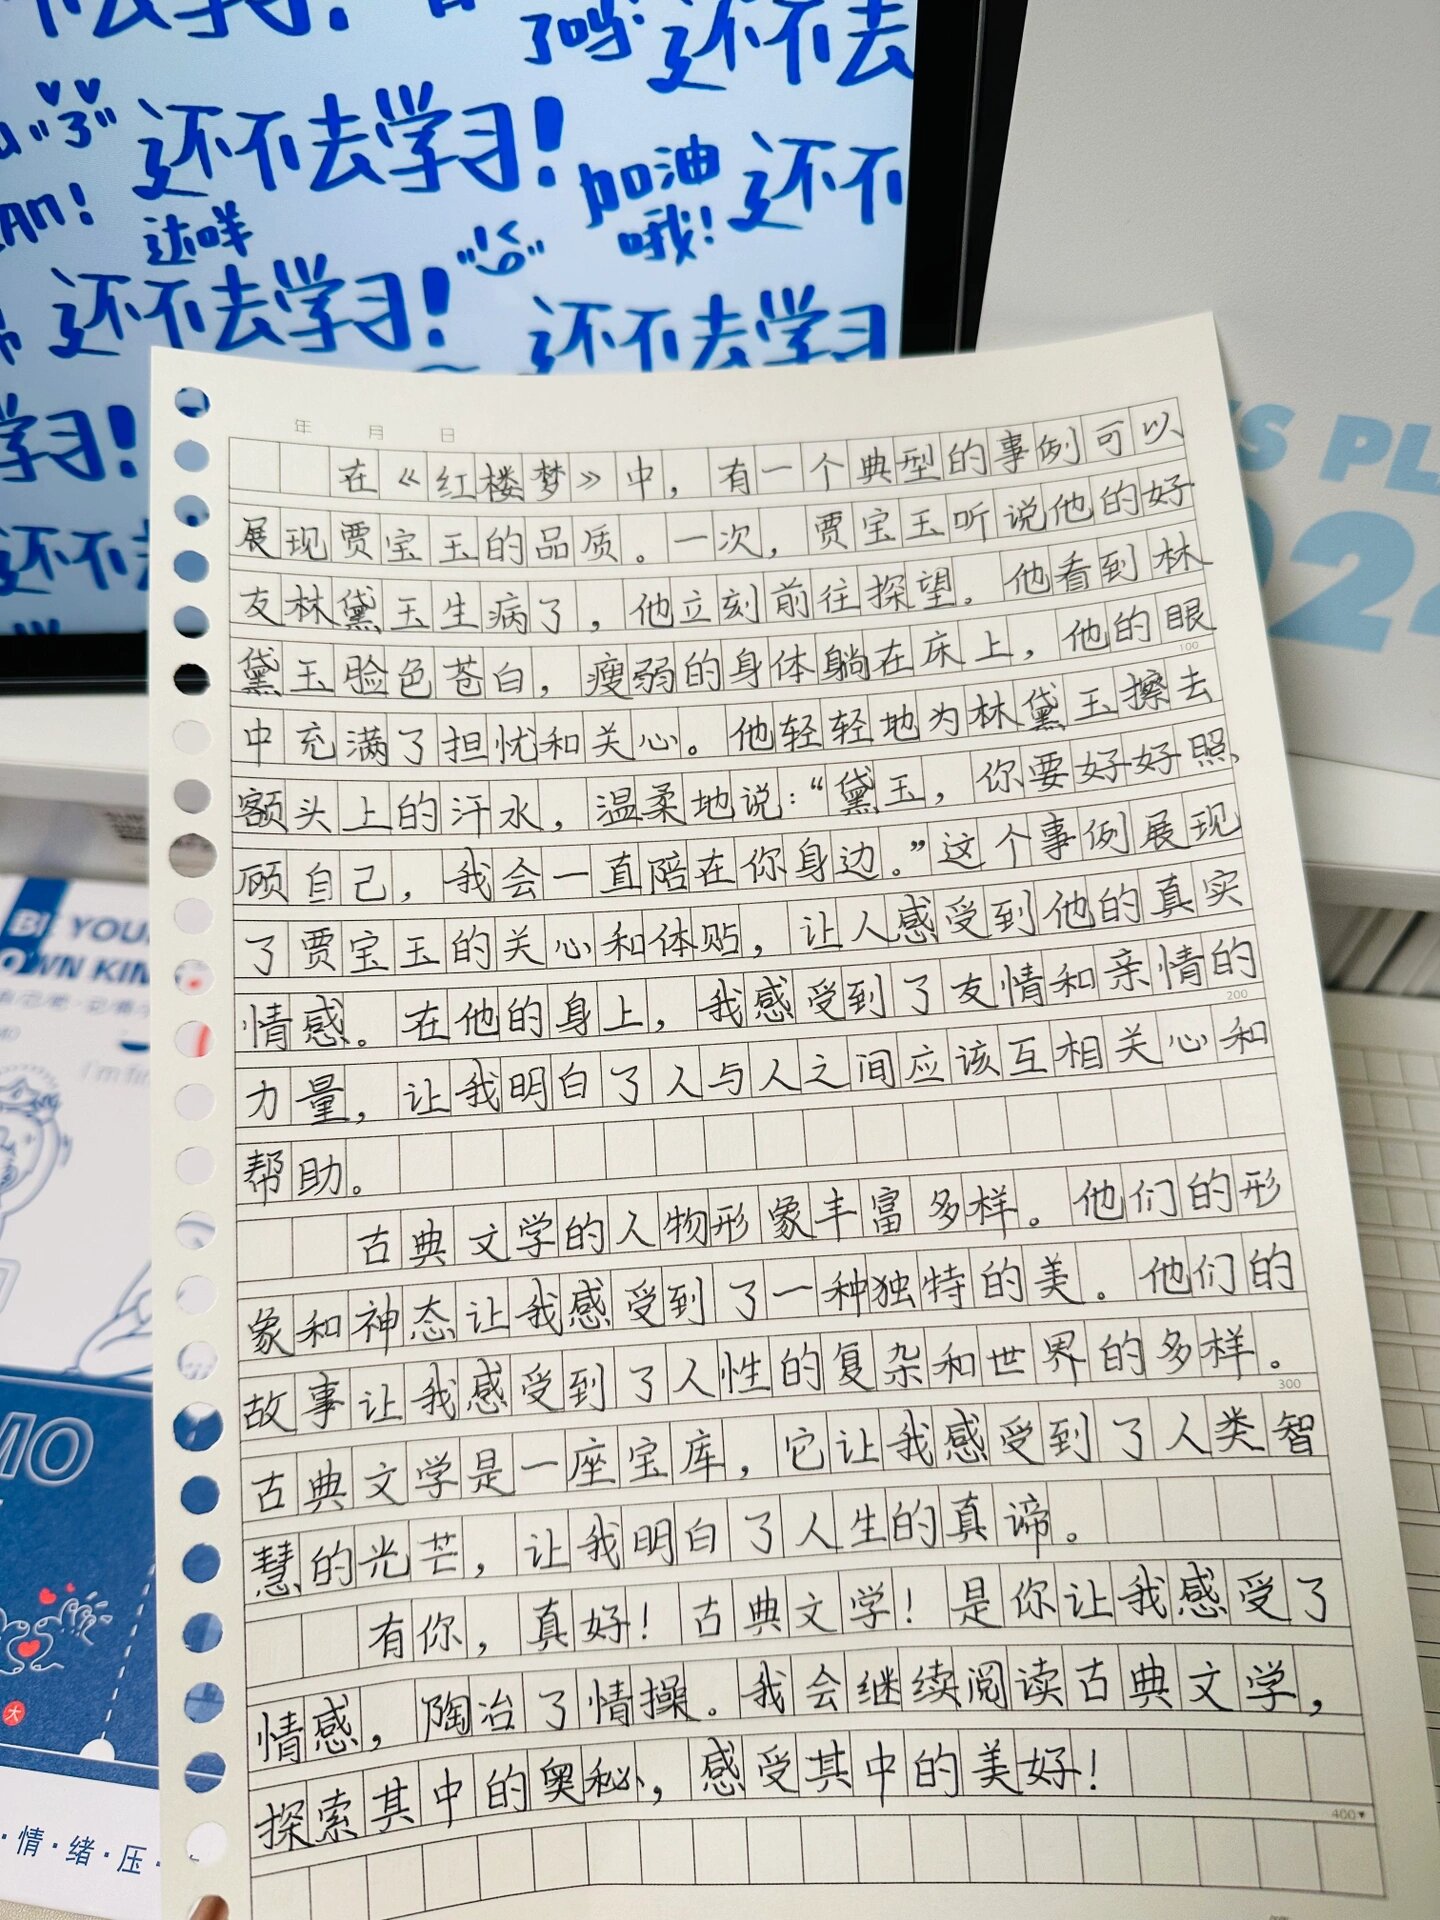 了吗 还不去
"3" 还不去学习！
加油哦！ 还不
达咩
还不去学习！
还不去学习
年 月 日
在《红楼梦》中，有一个典型的事例可以
展现贾宝玉的品质。一次，贾宝玉听说他的好
友林黛玉生病了，他立刻前往探望。他看到林
黛玉脸色苍白，瘦弱的身体躺在床上，他的眼
100
中充满了担忧和关心。他轻轻地为林黛玉擦去
额头上的汗水，温柔地说：“黛玉，你要好好照
顾自己，我会一直陪在你身边。”这个事例展现
了贾宝玉的关心和体贴，让人感受到他的真实
情感。在他的身上，我感受到了友情和亲情的
200
力量，让我明白了人与人之间应该互相关心和
帮助。
古典文学的人物形象丰富多样。他们的形
象和神态让我感受到了一种独特的美。他们的
故事让我感受到了人性的复杂和世界的多样。
300
古典文学是一座宝库，它让我感受到了人类智
慧的光芒，让我明白了人生的真谛。
有你，真好！古典文学！是你让我感受了
情感，陶冶了情操。我会继续阅读古典文学，
探索其中的奥秘，感受其中的美好！
400
BE YOUR
OWN KIN
MO
大
·情·绪·压·